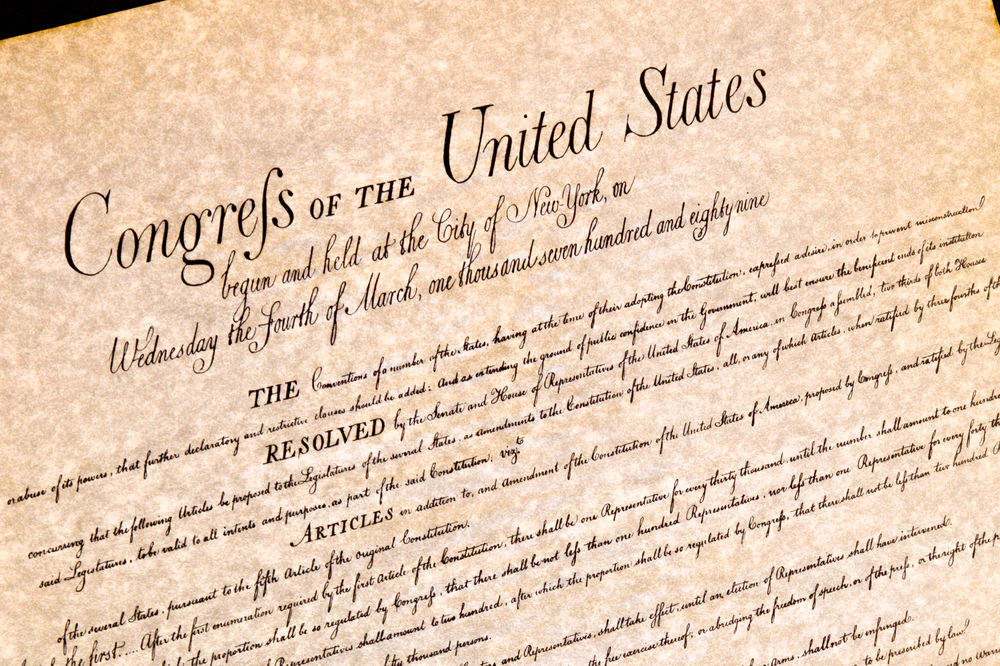 Congreſs OF THE United States
begun and held at the City of New-York, on
Wednesday the Fourth of March, one thousand seven hundred and eighty nine
THE Conventions of a number of the States, having at the time of their adopting the Constitution, expreſsed a desire, in order to prevent misconstruction
or abuse of its powers, that further declaratory and restrictive clauses should be added: And as extending the ground of public confidence in the Government, will best ensure the beneficent ends of its institution
RESOLVED by the Senate and House of Representatives of the United States of America, in Congreſs aſsembled, two thirds of both Houses
concurring that the following Articles be proposed to the Legislatures of the several States, as amendments to the Constitution of the United States, all, or any of which Articles, when ratified by three fourths of the
said Legislatures, to be valid to all intents and purposes, as part of the said Constitution; vizt
ARTICLES in addition to, and Amendment of the Constitution of the United States of America, proposed by Congreſs, and ratified by the
of the several States, pursuant to the fifth Article of the original Constitution.
the first.... After the first enumeration required by the first Article of the Constitution, there shall be one Representative for every thirty thousand, until the number shall amount to one
the proportion shall be so regulated by Congreſs, that there shall be not leſs than one hundred Representatives, nor leſs than one Representative for every forty
Representatives shall amount to two hundred, after which the proportion shall be so regulated by Congreſs, that there shall not be leſs than two hundred
fifty thousand persons.
and Representatives, shall take effect, until an election of Representatives shall have intervened.
the free exercise thereof, or abridging the freedom of speech, or of the preſs, or the right of the
Arms, shall not be infringed.
to be prescribed by law.
and no